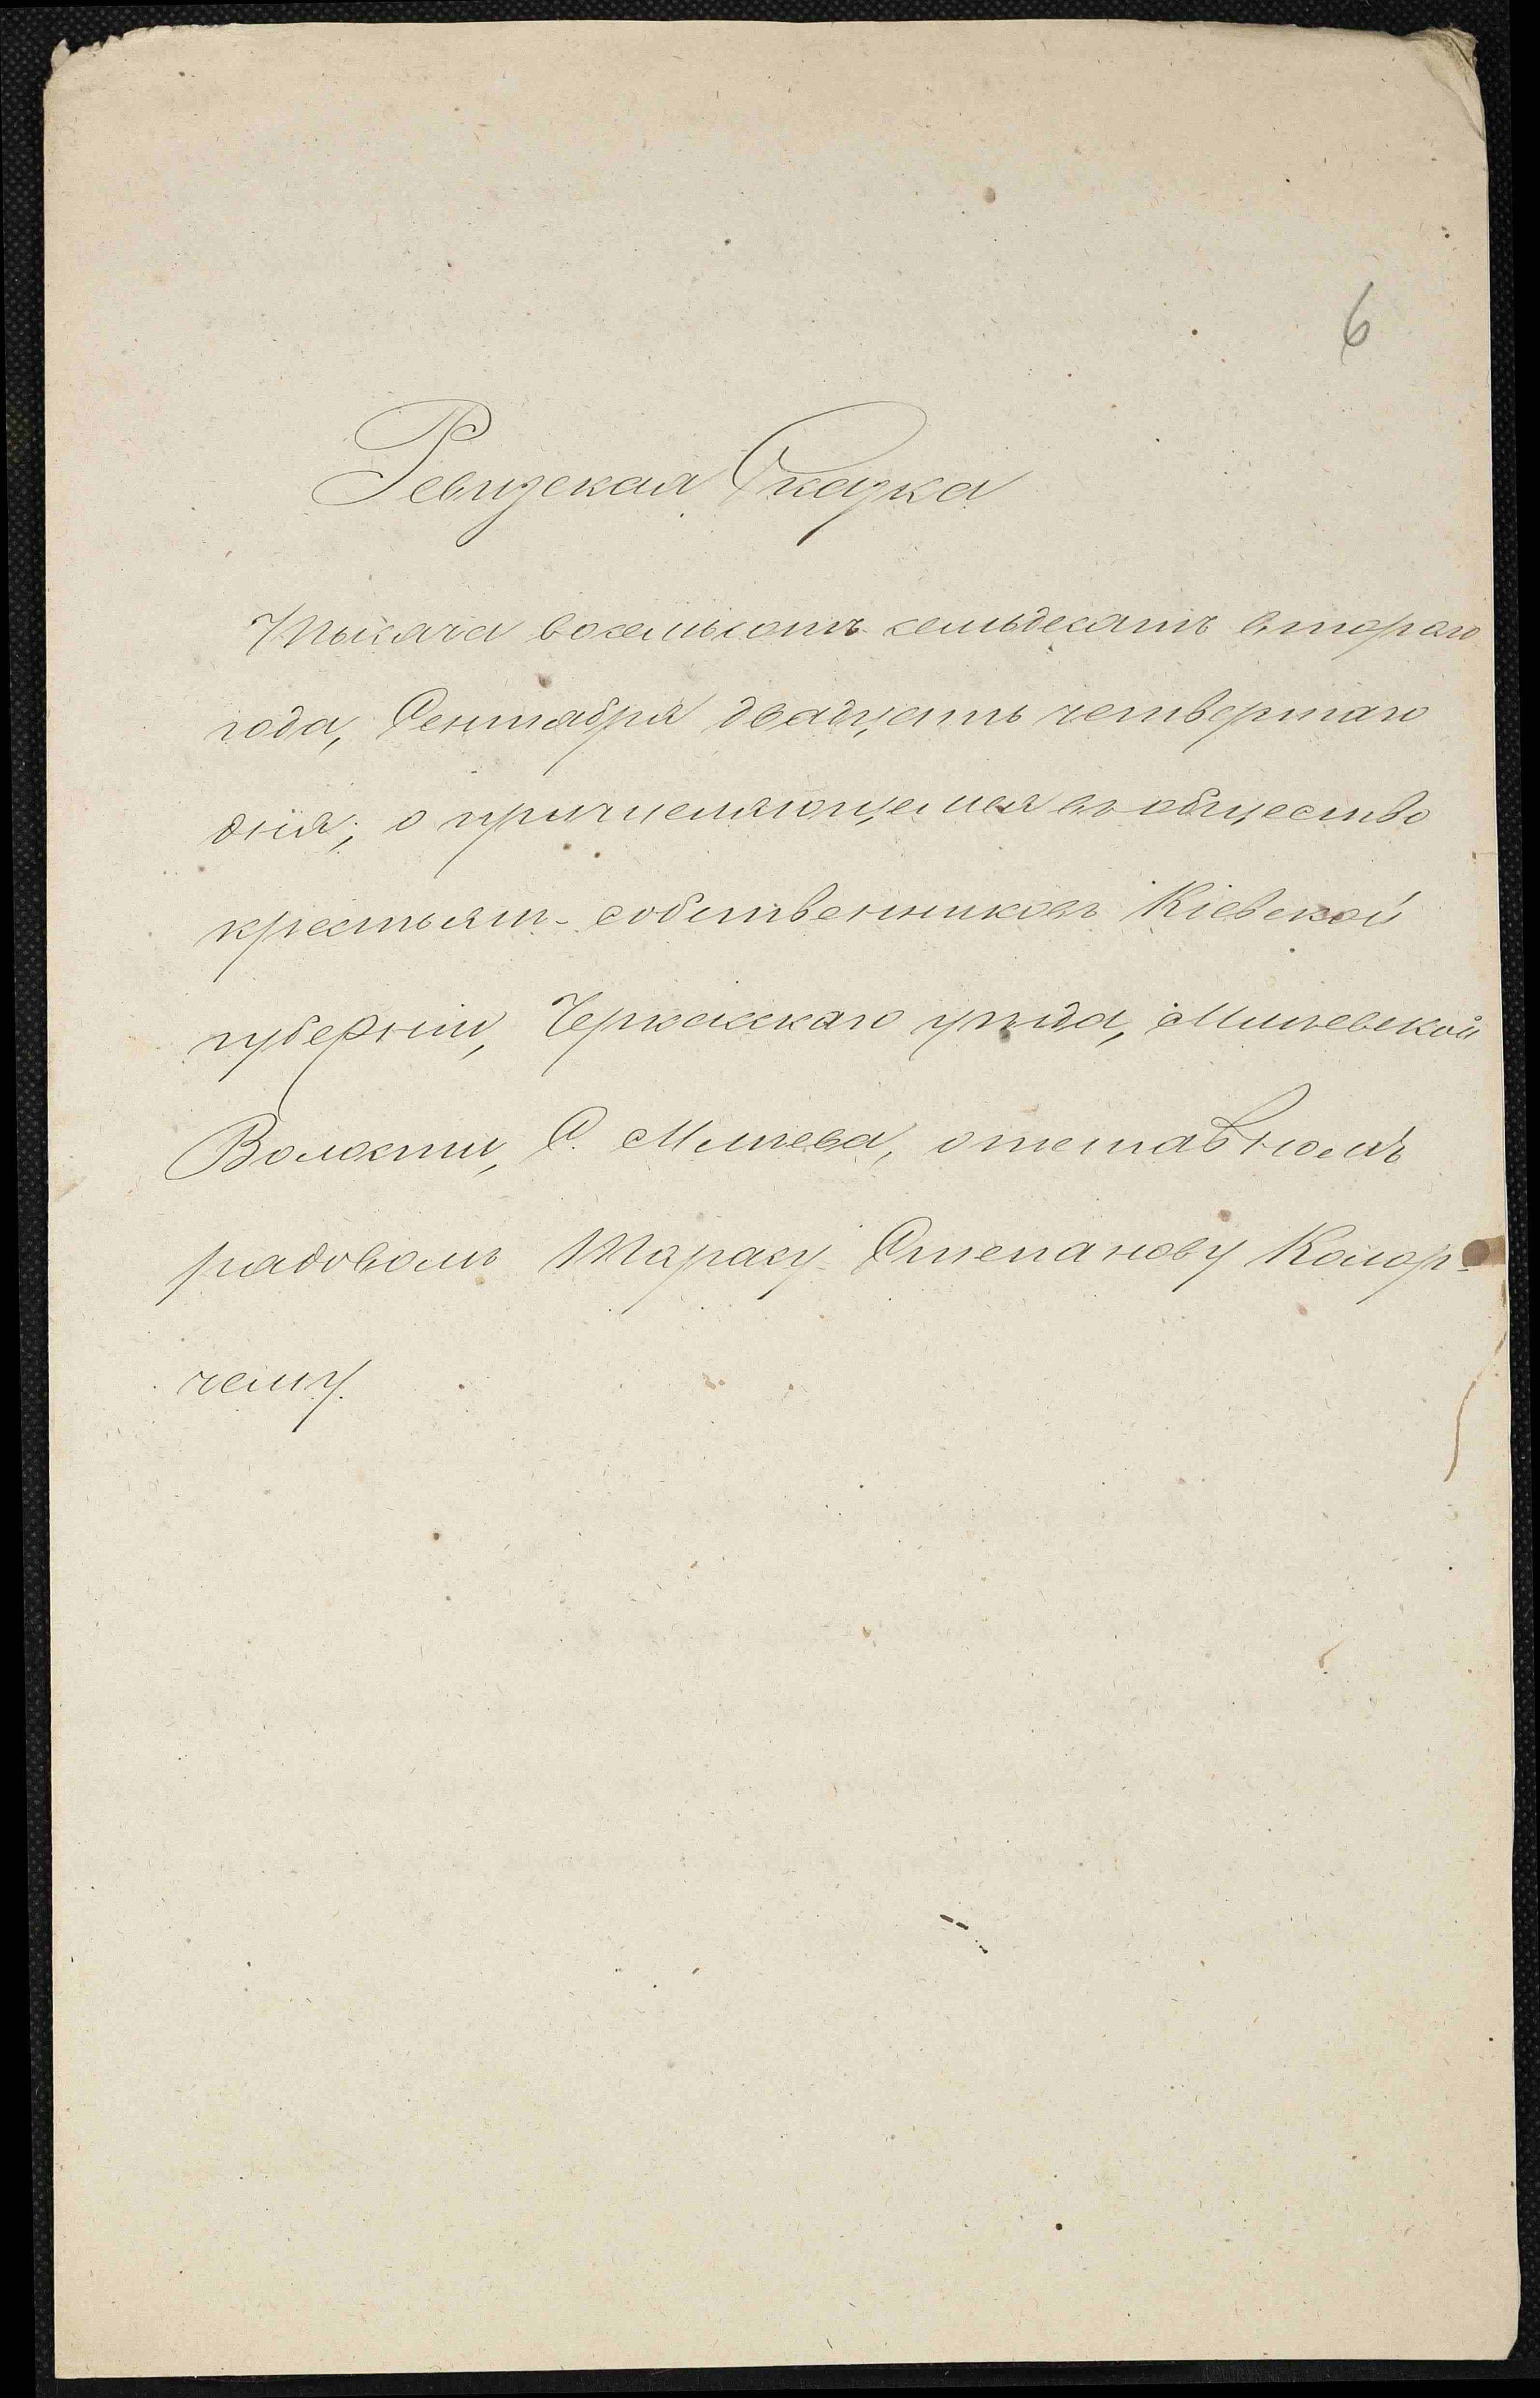 6
Ревизская Сказка
Тысяча восемьсотъ семьдесятъ втораго
года, Сентября двадцать четвертаго
дня; о причисляющемся въ общество
крестьянъ-собственниковъ Кіевской
губерніи, Черкасскаго уѣзда, Мліевской
Волости, С. Мліева, отставномъ
рядовомъ Тарасу Степанову
чему.